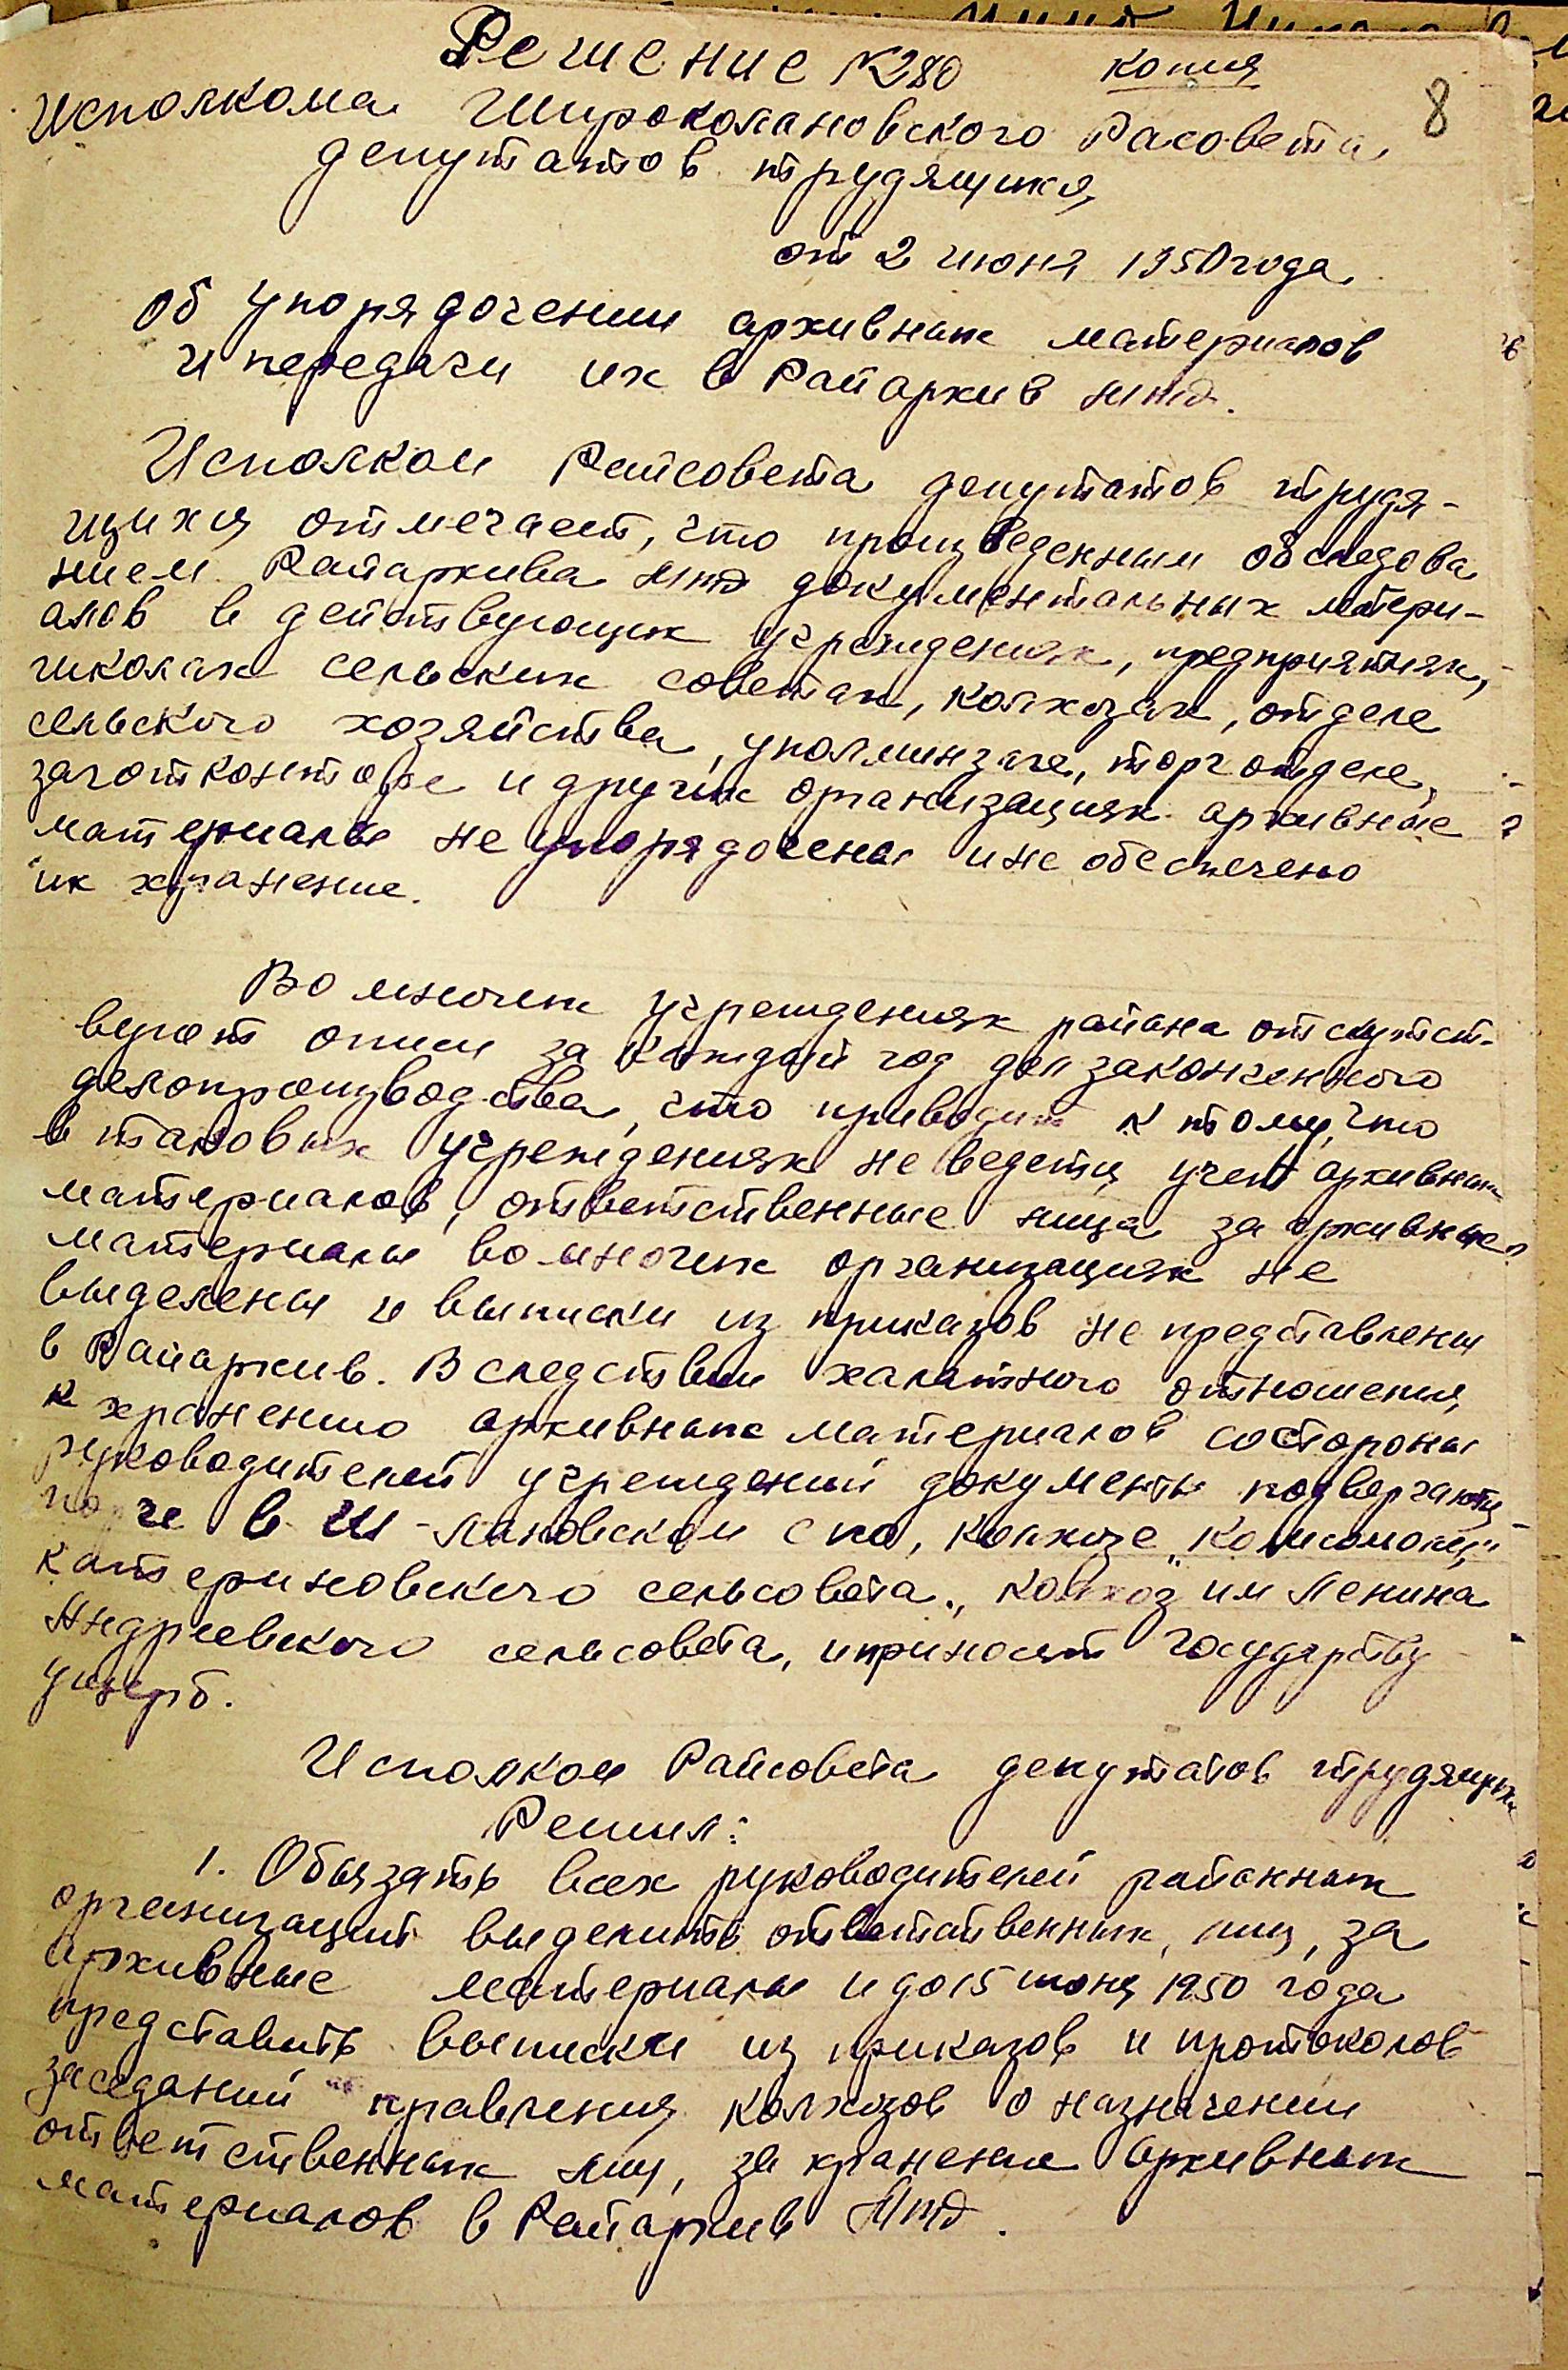 Решение №280 копия
8
Исполкома Широколановского Расовета
депутатов трудящихся
от 2 июня 1950 года
об упорядочении архивных материалов
и передачи их в Райархив МВД.
Исполком Райсовета депутатов трудя-
щихся отмечает, что произведенным обследова
нием Райархива МВД документальных матери-
алов в действующих учреждениях, предприятиях,
школах сельских советах, колхозах, отделе
сельского хозяйства, уполминзаге, торготделе,
заготконторе и других организациях архивные
материалы не упорядочены и не обеспечено
их хранение.
Во многих учреждениях района отсутст-
вуют описи за каждый год дел законченного
делопроизводства, что приводит к тому, что
в таковых учреждениях не ведется учет архивных
материалов, ответственные лица за архивные
материалы во многих организациях не
выделены и выписки из приказов не представлены
в Райархив. Вследствии халатного отношения
к хранению архивных материалов со стороны
руководителей учреждений документы подвергаются
порче в Ш-Лановском спо, колхозе „Комсомолец"
Катериновского сельсовета, колхоз им Ленина
Андреевского сельсовета, и приносят государству
ущерб.
Исполком Райсовета депутатов трудящихся
Решил:
1. Обязать всех руководителей районных
организаций выделить ответственных, лиц, за
архивные материалы и до 15 июня 1950 года
представить выписки из приказов и протоколов
заседаний правления колхозов о назначении
ответственных лиц, за хранение архивных
материалов в Райархив МВД.